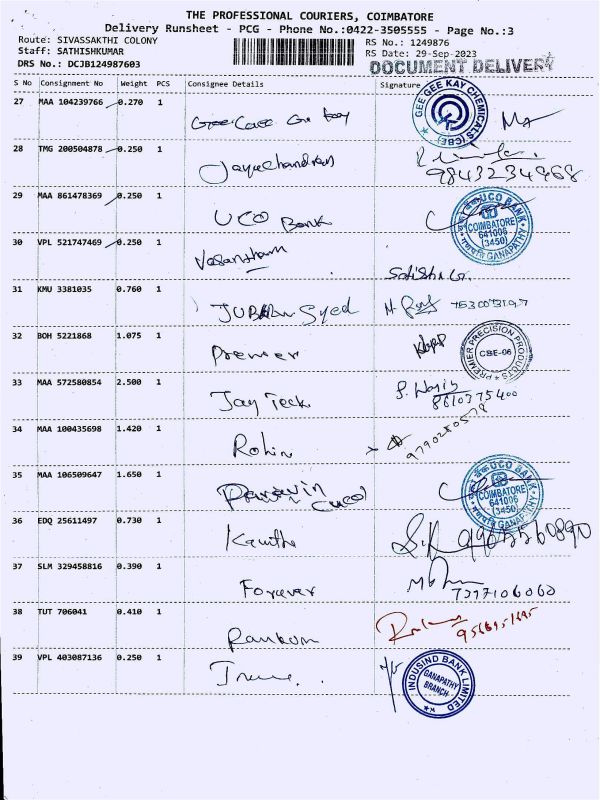 THE PROFESSIONAL COURIERS, COIMBATORE
Delivery Runsheet - PCG - Phone No.:0422-3505555 - Page No.:3
Route: SIVASSAKTHI COLONY RS No.: 1249876
Staff: SATHISHKUMAR RS Date: 29-Sep-2023
DRS No.: DCJB124987603 DOCUMENT DELIVERY
S No Consignment No Weight PCS Consignee Details Signature
27 MAA 104239766 0.270 1 GEE GEE KAY CHEMICALS (CBE)
28 TMG 200504878 0.250 1 Jayachandran
9843234968
29 MAA 861478369 0.250 1 UCO Bank UCO BANK COIMBATORE 641006 (3450) GANAPATHY
30 VPL 521747469 0.250 1 Vasantham
31 KMU 3381035 0.760 1 Syed
32 BOH 5221868 1.075 1 Premier PREMIER PRECISION PRODUCTS CBE-06
33 MAA 572580854 2.500 1 Jay Teck
8610375400
34 MAA 100435698 1.420 1 Rohin 9790280578
35 MAA 106509647 1.650 1 UCO BANK COIMBATORE 641006 (3450) GANAPATHY
36 EDQ 25611497 0.730 1 Kavitha
37 SLM 329458816 0.390 1 Forever
38 TUT 706041 0.410 1
39 VPL 403087136 0.250 1 INDUSIND BANK LIMITED GANAPATHY BRANCH